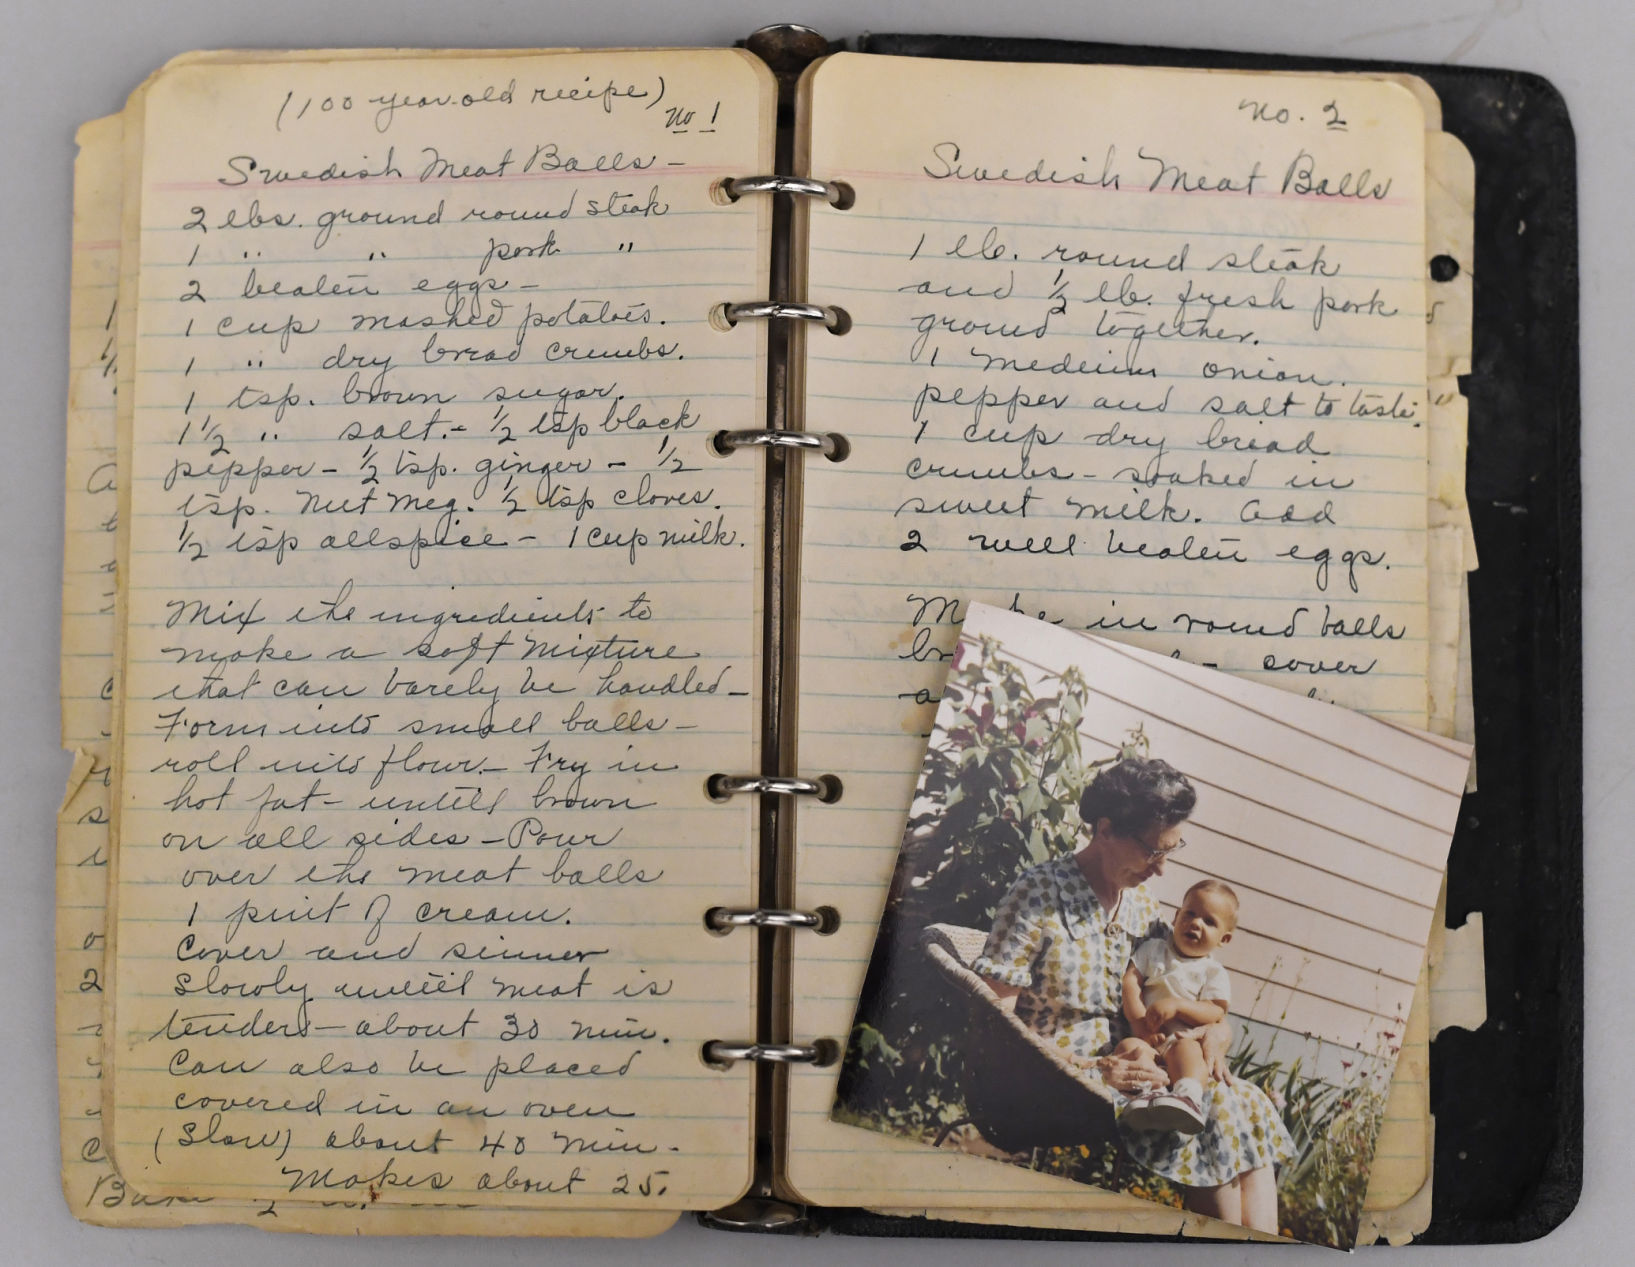 (100 year old recipe)
No 1
Swedish Meat Balls -
2 lbs. ground round steak
1 " " pork "
2 beaten eggs -
1 cup mashed potatoes.
1 " dry bread crumbs.
1 tsp. brown sugar.
1 1/2 " salt. - 1/2 tsp black
pepper - 1/2 tsp. ginger - 1/2
tsp. Nut Meg. 1/2 tsp cloves.
1/2 tsp allspice - 1 cup milk.
Mix the ingredients to
make a soft mixture
that can barely be handled -
Form into small balls -
roll into flour. - Fry in
hot fat - untill brown
on all sides - Pour
over the meat balls
1 pint of cream.
Cover and simmer
slowly untill meat is
tender - about 30 min.
Can also be placed
covered in an oven
(Slow) about 40 min.
Makes about 25.
No. 2
Swedish Meat Balls
1 lb. round steak
and 1/2 lb. fresh pork
ground together.
1 medium onion.
pepper and salt to taste.
1 cup dry bread
crumbs - soaked in
sweet milk. Add
2 well beaten eggs.
in round balls
cover